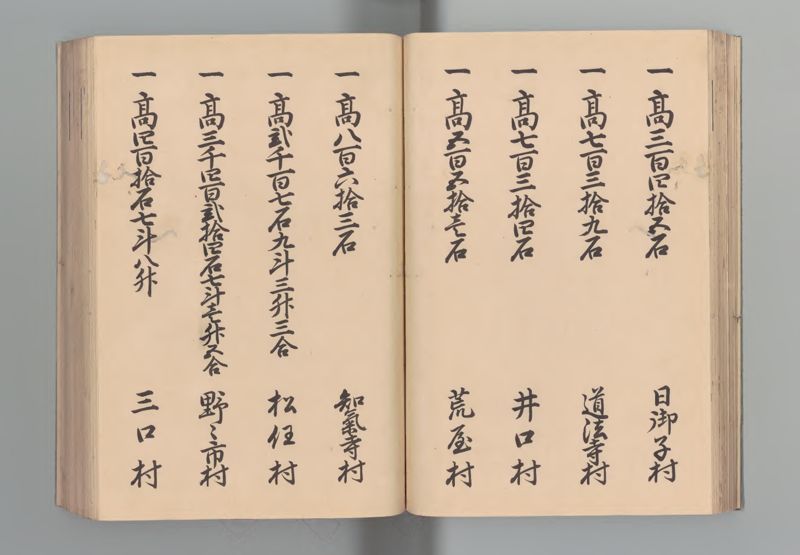 一 高三百四拾五石 日御子村
一 高七百三拾九石 道法寺村
一 高七百三拾四石 井口村
一 高五百五拾壱石 荒屋村
一 高八百六拾三石 知氣寺村
一 高弐千百七石九斗三升三合 松任村
一 高三千四百弐拾四石七斗壱升五合 野々市村
一 高四百拾石七斗八升 三口村